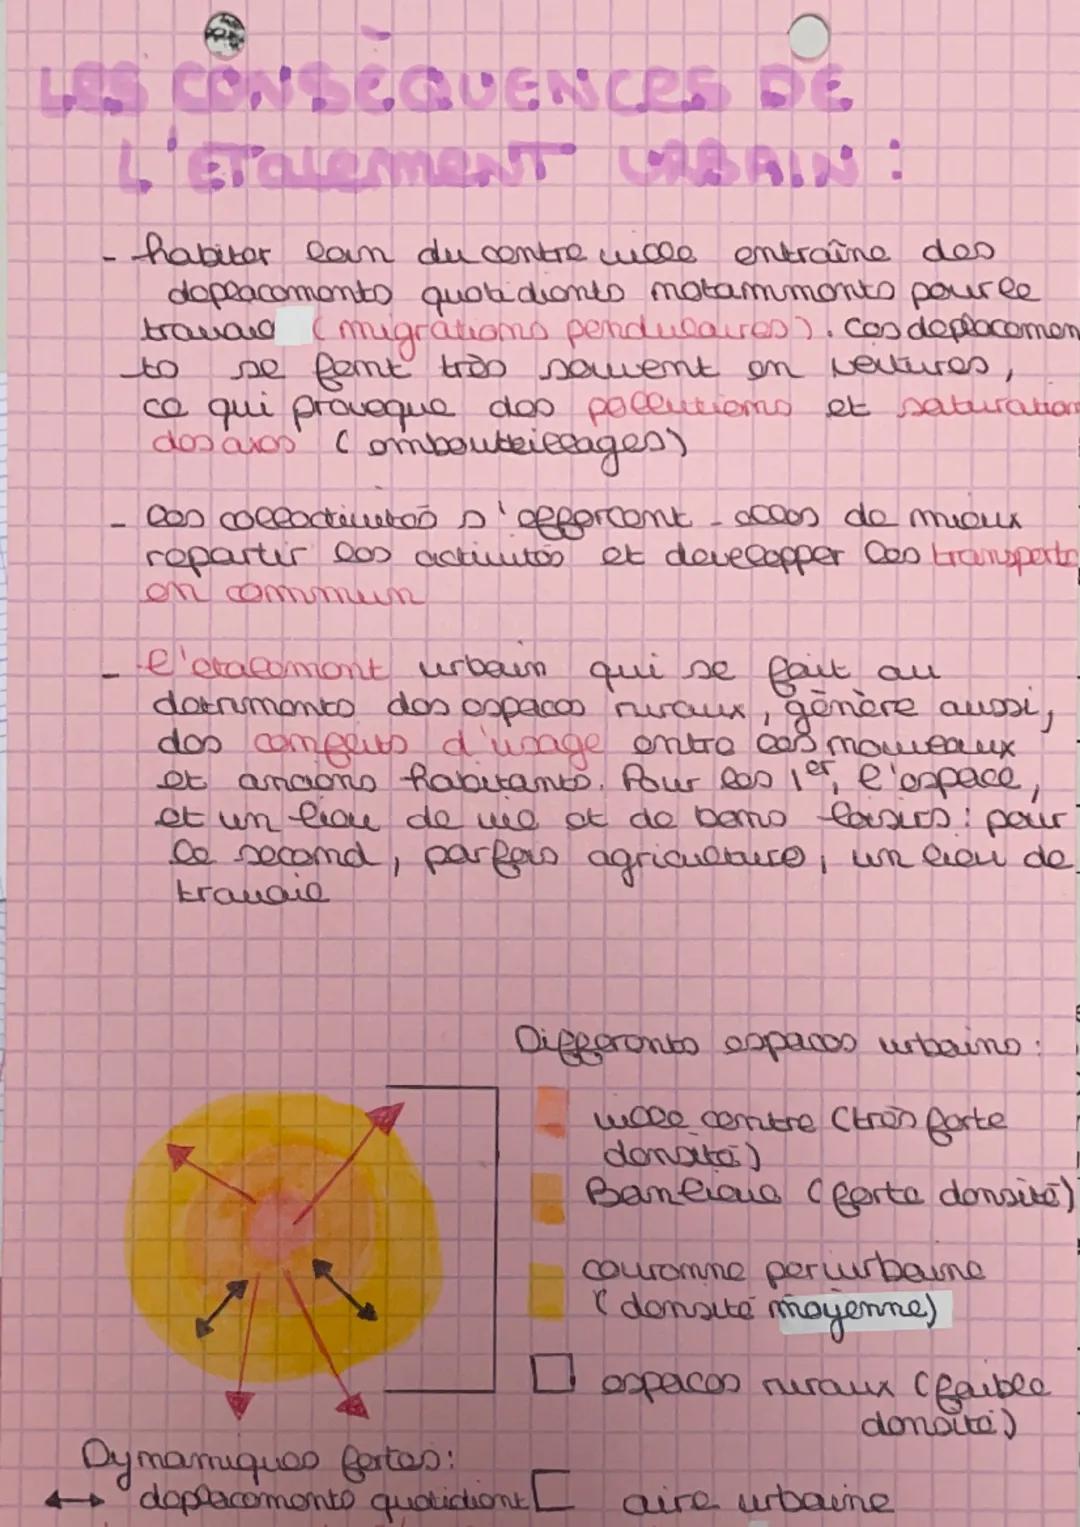 LES CONSÉQUENCES DE
L'ETALEMENT URBAIN :
- habiter loin du centre ville entraîne des
deplacements quotidients notamments pour le
travail (migrations pendulaires). Ces deplacemen
ts se font très souvent en voitures,
ce qui provoque des pollutions et saturation
des axes (embouteillages)
- Les collectivités s'efforcent - elles de mieux
repartir les activités et developper les transports
en commun
- l'étalement urbain qui se fait au
detriments des espaces ruraux, génère aussi,
des conflits d'usage entre les nouveaux
et anciens habitants. Pour les 1er, l'espace,
et un lieu de vie et de bons loisirs : pour
le second, parfois agriculture, un lieu de
travail
Differents espaces urbains :
ville centre (très forte
densité)
Banlieue (forte densité)
couronne periurbaine
(densité moyenne)
espaces ruraux (faible
densité)
Dynamiques fortes :
deplacements quotidient
aire urbaine